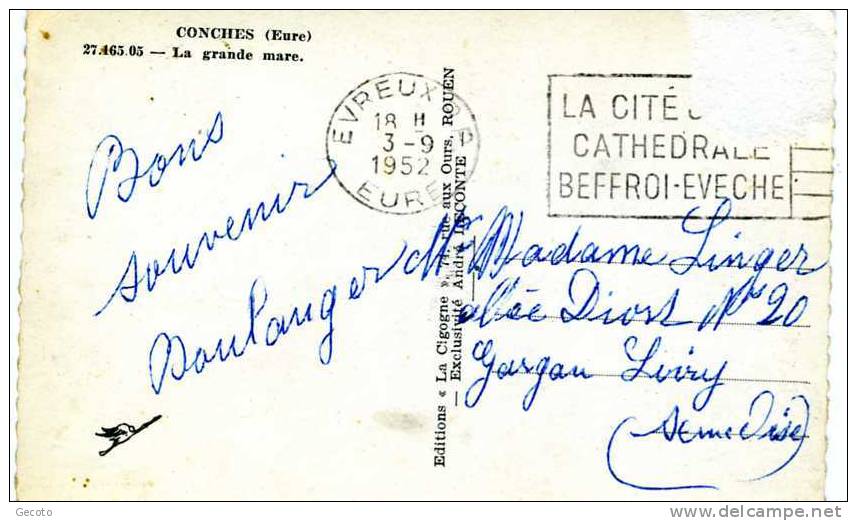 CONCHES (Eure)
27.465.05 — La grande mare.
EVREUX R.P
18 H
3-9
1952
EURE
LA CITÉ
CATHEDRALE
BEFFROI-EVECHE
Bons
souvenir
Boulanger
Mr Madame Linger
allée Diost No 20
Gargan Livry
(Seine Oise)
Editions « La Cigogne », 74, rue aux Ours, ROUEN
— Exclusivité André LECONTE —
Gecoto
www.delcampe.net